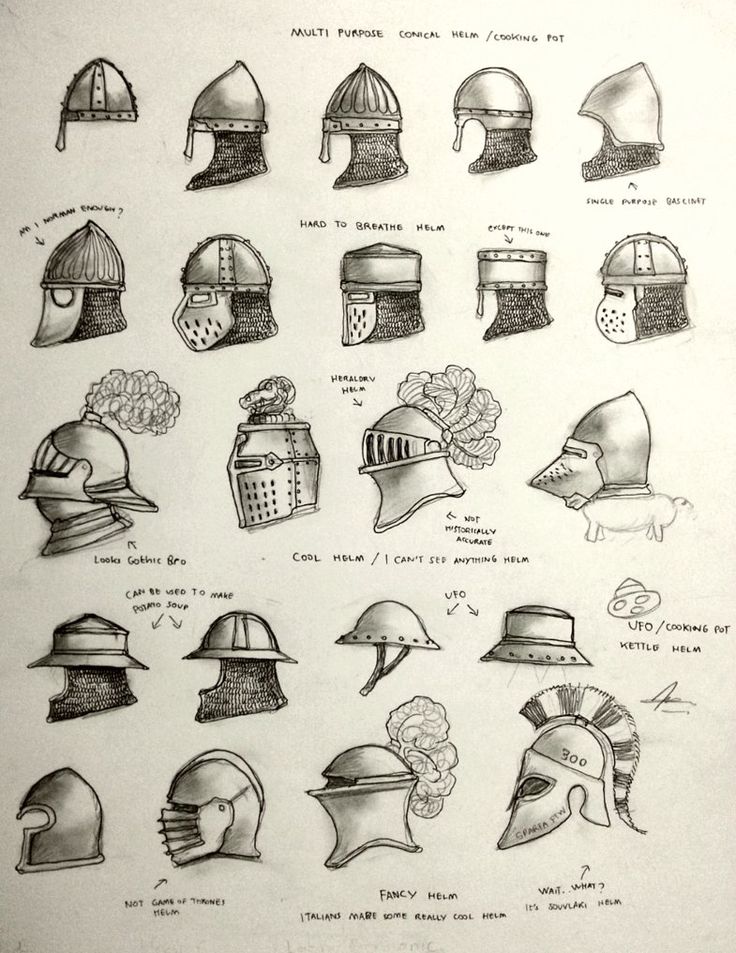 MULTI PURPOSE CONICAL HELM / COOKING POT
SINGLE PURPOSE BASCINET
AM I NORMAN ENOUGH?
HARD TO BREATHE HELM
EXCEPT THIS ONE
HERALDRY
HELM
NOT
HISTORICALLY
ACCURATE
LOOKS GOTHIC BRO
COOL HELM / I CAN'T SEE ANYTHING HELM
CAN BE USED TO MAKE
POTATO SOUP
UFO
UFO/COOKING POT
KETTLE HELM
300
SPARTA FTW
NOT GAME OF THRONES
HELM
FANCY HELM
ITALIANS MAKE SOME REALLY COOL HELM
WAIT..WHAT?
IT'S SOUVLAKI HELM